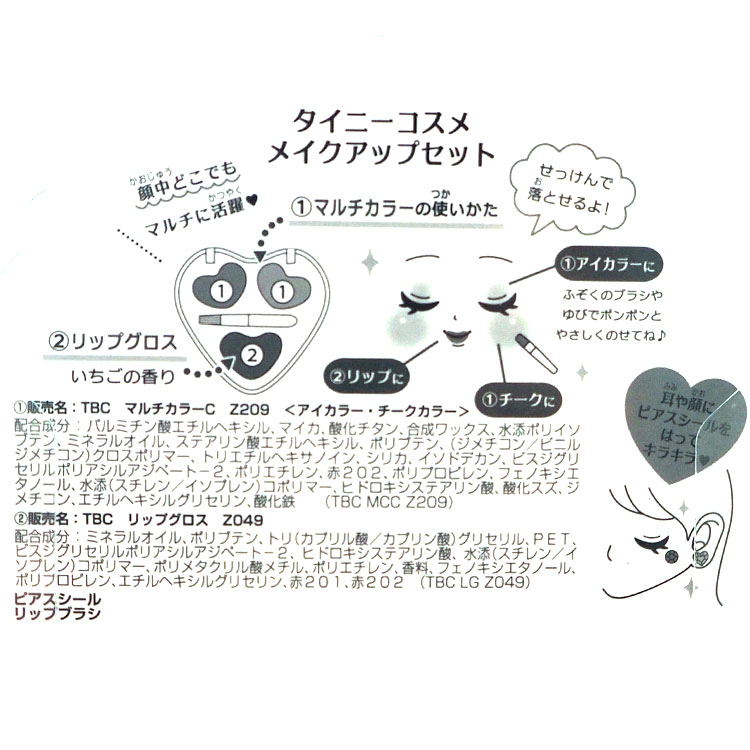 タイニーコスメ
メイクアップセット
かおじゅう
顔中どこでも
かつやく
マルチに活躍♥
つか
①マルチカラーの使いかた
せっけんで
お
落とせるよ!
①アイカラーに
ふぞくのブラシや
ゆびでポンポンと
やさしくのせてね♪
1
1
2
②リップグロス
いちごの香り
②リップに
①チークに
みみ かお
耳や顔に
ピアスシールを
はって
キラキラ♥
①販売名:TBC マルチカラーC Z209 <アイカラー・チークカラー>
配合成分:パルミチン酸エチルヘキシル、マイカ、酸化チタン、合成ワックス、水添ポリイソ
ブテン、ミネラルオイル、ステアリン酸エチルヘキシル、ポリブテン、(ジメチコン/ビニル
ジメチコン)クロスポリマー、トリエチルヘキサノイン、シリカ、イソドデカン、ビスジグリ
セリルポリアシルアジペート-2、ポリエチレン、赤202、ポリプロピレン、フェノキシエ
タノール、水添(スチレン/イソプレン)コポリマー、ヒドロキシステアリン酸、酸化スズ、ジ
メチコン、エチルヘキシルグリセリン、酸化鉄 (TBC MCC Z209)
②販売名:TBC リップグロス Z049
配合成分:ミネラルオイル、ポリブテン、トリ(カプリル酸/カプリン酸)グリセリル、PET、
ビスジグリセリルポリアシルアジペート-2、ヒドロキシステアリン酸、水添(スチレン/イ
ソプレン)コポリマー、ポリメタクリル酸メチル、ポリエチレン、香料、フェノキシエタノール、
ポリプロピレン、エチルヘキシルグリセリン、赤201、赤202 (TBC LG Z049)
ピアスシール
リップブラシ